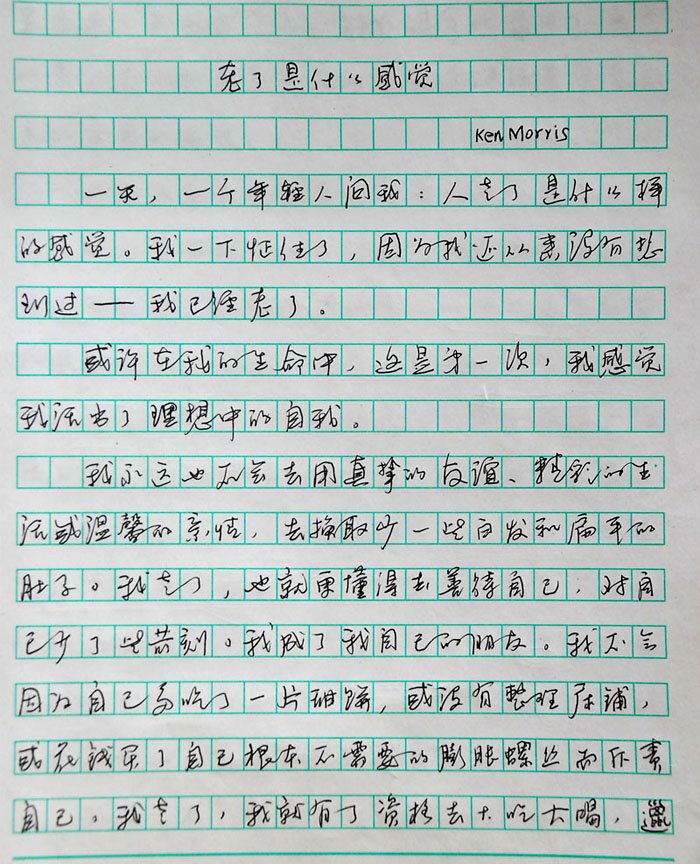 老了是什么感觉
Ken Morris
一天，一个年轻人问我：人老了是什么样
的感觉。我一下怔住了，因为我还从来没有想
到过——我已经老了。
或许在我的生命中，这是第一次，我感觉
我活出了理想中的自我。
我永远也不会去用真挚的友谊、精彩的生
活或温馨的亲情，去换取少一些白发和扁平的
肚子。我老了，也就更懂得去善待自己，对自
己少了些苛刻。我成了我自己的朋友。我不会
因为自己多吃了一片甜饼，或没有整理床铺，
或花钱买了自己根本不需要的膨胀螺丝而斥责
自己。我老了，我就有了资格去大吃大喝，邋